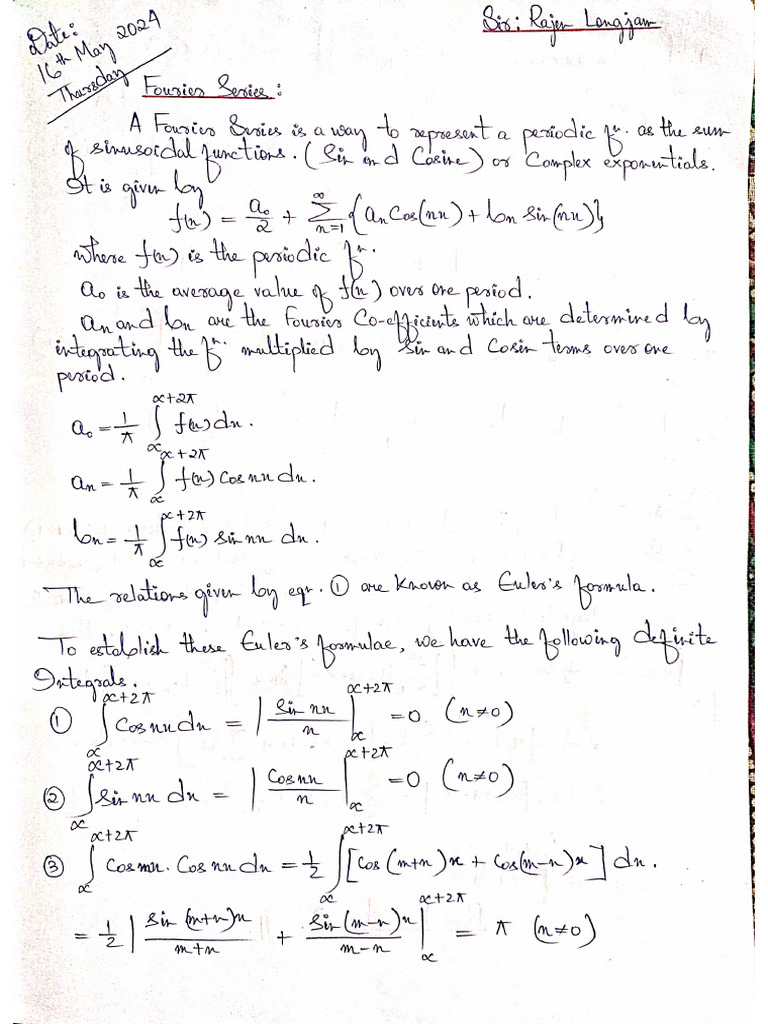 Date:
16th May 2024
Thursday
Sir: Rajen Longjam
Fourier Series:
A Fourier Series is a way to represent a periodic fⁿ. as the sum
of sinusoidal functions. (Sin and Cosine) or Complex exponentials.
It is given by
f(x) = a₀/2 + ∑_{n=1}^{∞} {aₙ Cos(nx) + bₙ Sin(nx)}
where f(x) is the periodic fⁿ.
a₀ is the average value of f(x) over one period.
aₙ and bₙ are the Fourier Co-efficients which are determined by
integrating the fⁿ. multiplied by Sin and Cosin terms over one
period.
a₀ = 1/π ∫_{α}^{α+2π} f(x) dx.
aₙ = 1/π ∫_{α}^{α+2π} f(x) Cos nx dx.
bₙ = 1/π ∫_{α}^{α+2π} f(x) Sin nx dx.
The relations given by eqn. ① are known as Euler's formula.
To establish these Euler's formulae, we have the following definite
Integrals.
① ∫_{α}^{α+2π} Cos nx dx = |Sin nx / n|_{α}^{α+2π} = 0 (n≠0)
② ∫_{α}^{α+2π} Sin nx dx = |Cos nx / n|_{α}^{α+2π} = 0 (n≠0)
③ ∫_{α}^{α+2π} Cos mx. Cos nx dx = 1/2 ∫_{α}^{α+2π} [Cos (m+n)x + Cos(m-n)x] dx.
= 1/2 |Sin (m+n)x / m+n + Sin (m-n)x / m-n|_{α}^{α+2π} = π (n≠0)